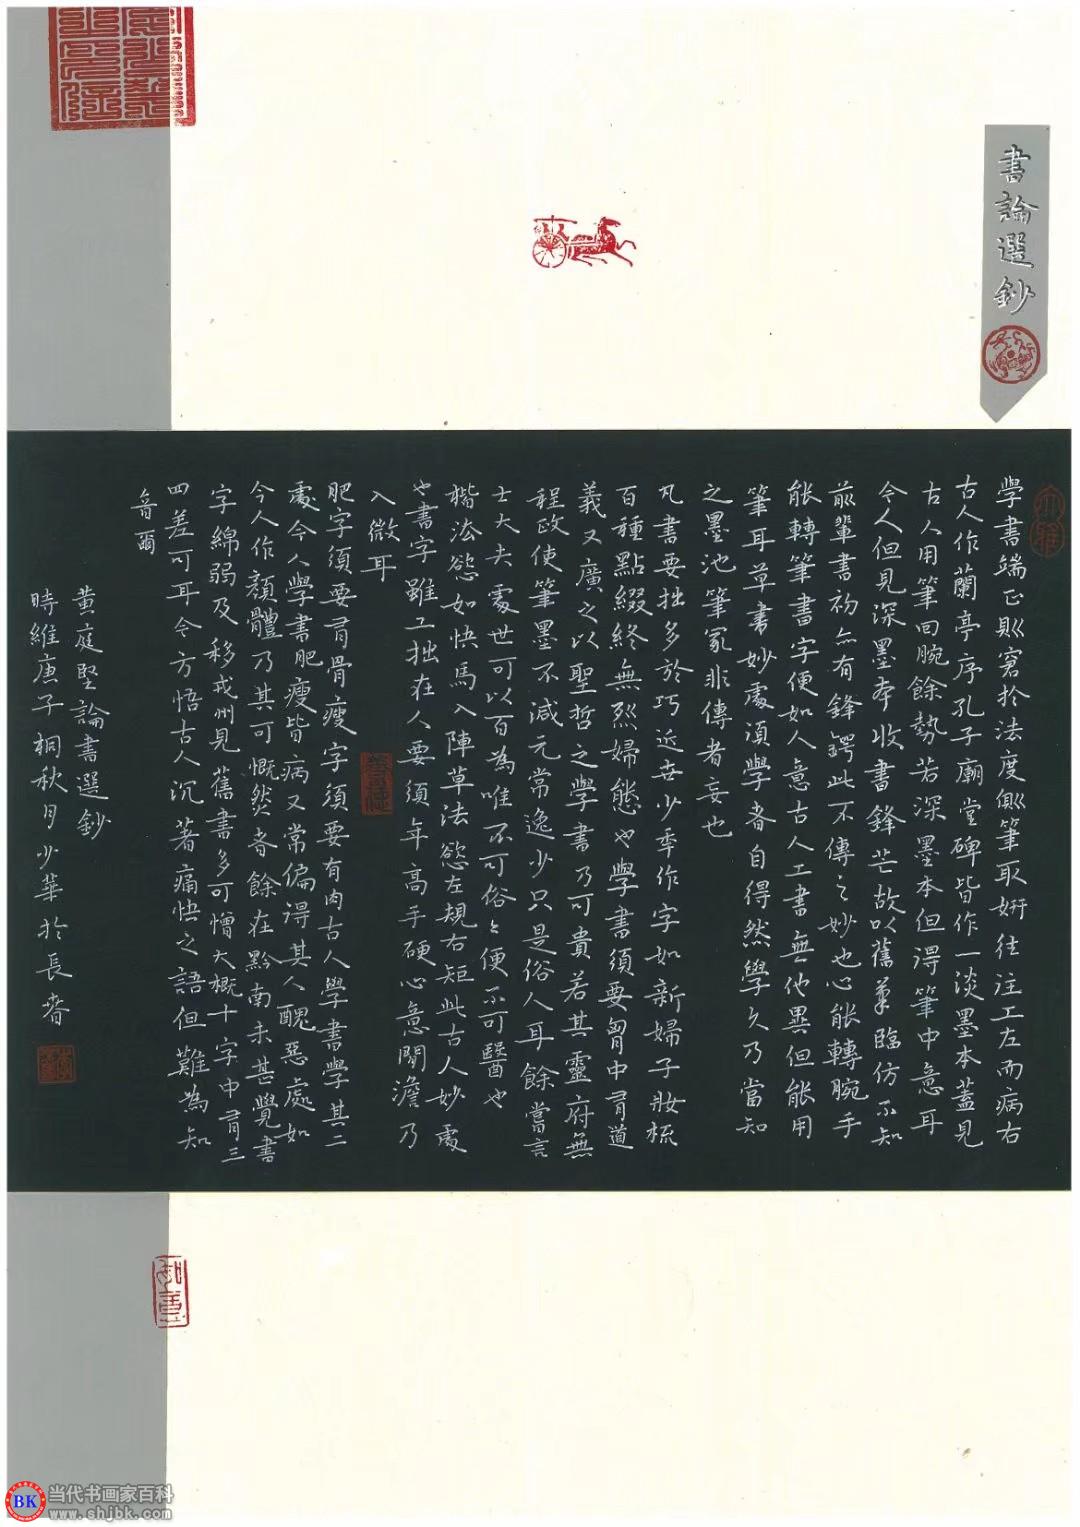 書論選鈔
學書端正則窘於法度側筆取妍往往工左而病右
古人作蘭亭序孔子廟堂碑皆作一淡墨本蓋見
古人用筆回腕餘勢若深墨本但得筆中意耳
今人但見深墨本收書鋒芒故以舊筆臨仿不知
前輩書初亦有鋒鍔此不傳之妙也心能轉腕手
能轉筆書字便如人意古人工書無他異但能用
筆耳草書妙處須學者自得然學久乃當知
之墨池筆冢非傳者妄也
凡書要拙多於巧近世少年作字如新婦子妝梳
百種點綴終無烈婦態也學書須要胷中有道
義又廣之以聖哲之學書乃可貴若其靈府無
程政使筆墨不減元常逸少只是俗人耳餘嘗言
士大夫處世可以百為唯不可俗々便不可醫也
楷法慾如快馬入陣草法慾左規右矩此古人妙處
也書字雖工拙在人要須年高手硬心意閒澹乃
入微耳
肥字須要有骨瘦字須要有肉古人學書學其二
處今人學書肥瘦皆病又常偏得其人醜惡處如
今人作顏體乃其可慨然者餘在黔南未甚覺書
字綿弱及移戎州見舊書多可憎大概十字中有三
四差可耳今方悟古人沉著痛快之語但難為知
音爾
黃庭堅論書選鈔
時維庚子桐秋月少華於長春
BK
当代书画家百科
www.shjbk.com